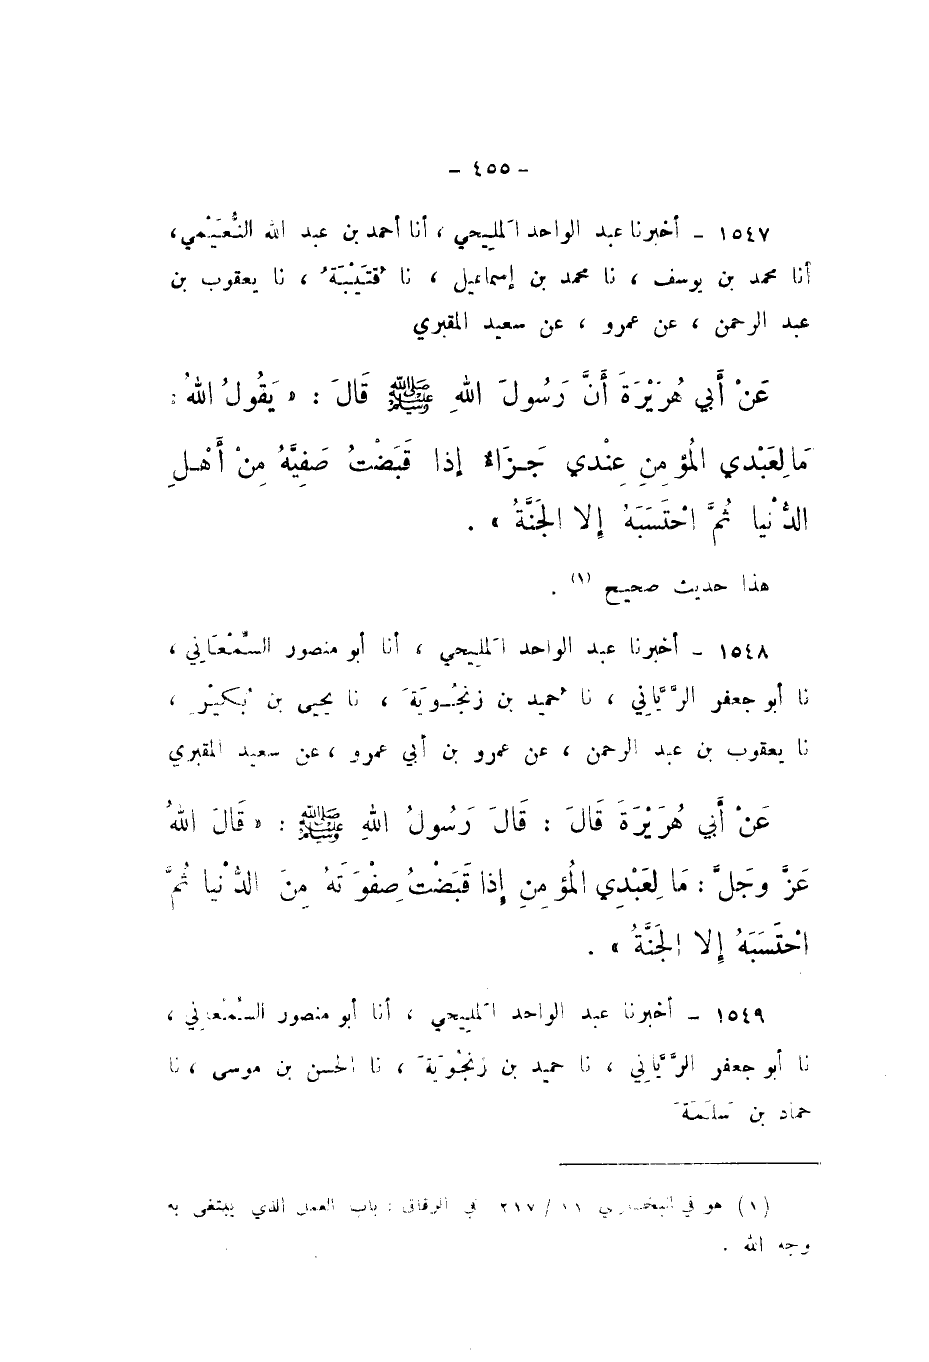 - ٤٥٥ -
١٥٤٧ - أخبرنا عبد الواحد المَليحي ، أنا أحمد بن عبد الله النُّعَيْمي ،
أنا محمد بن يوسف ، نا محمد بن إسماعيل ، نا قُتَيْبَةُ ، نا يعقوب بن
عبد الرحمن ، عن عمرو ، عن سعيد المقبري
عَنْ أَبي هُرَيْرَةَ أَنَّ رَسُولَ اللهِ ﷺ قَالَ : « يَقُولُ اللهُ :
مَا لِعَبْدِي المُؤمِنِ عِنْدي جَزَاءٌ إذا قَبَضْتُ صَفِيَّهُ مِنْ أَهْلِ
الدُّنْيا ثُمَّ احْتَسَبَهُ إلا الجَنَّةُ » .
هذا حديث صحيح (١) .
١٥٤٨ - أخبرنا عبد الواحد المَليحي ، أنا أبو منصور السَّمْعَاني ،
نا أبو جعفر الرَّيَّاني ، نا حُميد بن زنجُويَةَ ، نا يحيى بن بُكَيْرٍ ،
نا يعقوب بن عبد الرحمن ، عن عمرو بن أبي عمرو ، عن سعيد المقبري
عَنْ أَبي هُرَيْرَةَ قَالَ : قَالَ رَسُولُ اللهِ ﷺ : « قَالَ اللهُ
عَزَّ وجَلَّ : مَا لِعَبْدِي المُؤمِنِ إذا قَبَضْتُ صِفْوَتَهُ مِنَ الدُّنْيا ثُمَّ
احْتَسَبَهُ إلا الجَنَّةُ » .
١٥٤٩ - أخبرنا عبد الواحد المَليحي ، أنا أبو منصور السَّمْعاني ،
نا أبو جعفر الرَّيَّاني ، نا حميد بن زنجُويَةَ ، نا الحسن بن موسى ، نا
حماد بن سَلَمَةَ
(١) هو في البخاري ١١ / ٢١٧ في الرقاق : باب العمل الذي يبتغى به
وجه الله .